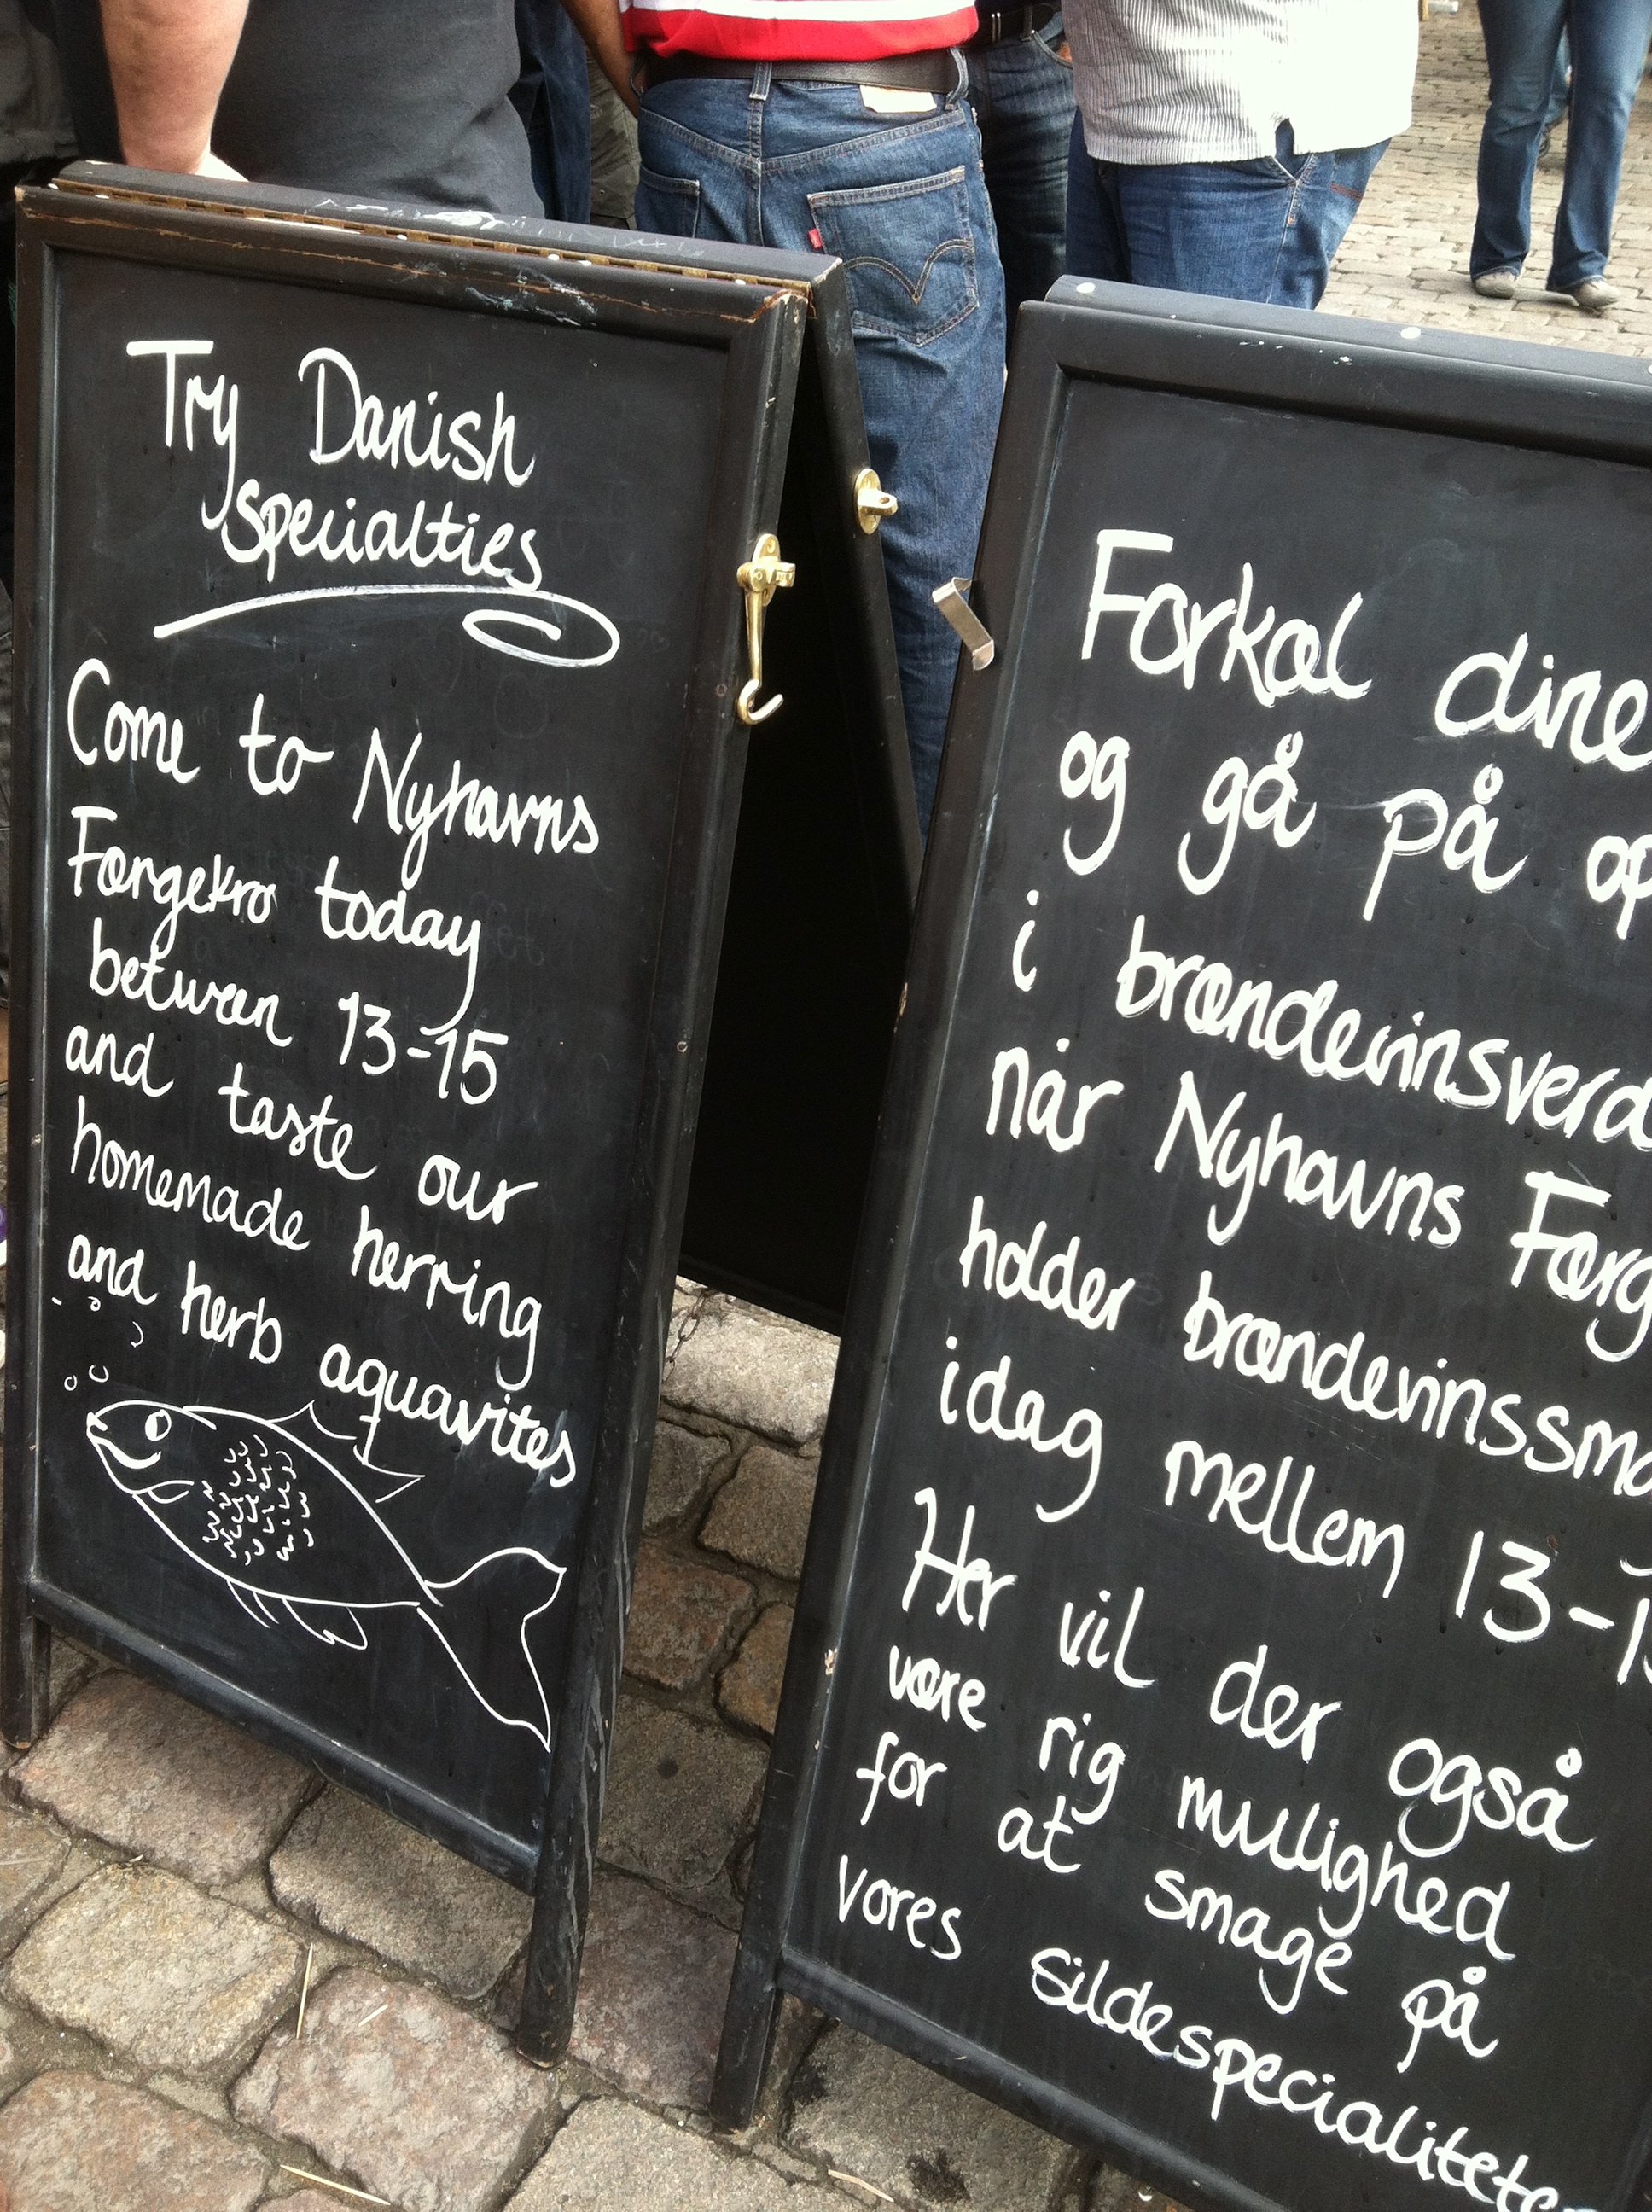 Try Danish
specialties
Come to Nyhavns
Færgekro today
between 13-15
and taste our
homemade herring
and herb aquavites
Forkæl dine
og gå på op
i brændevinsverd
når Nyhavns Færg
holder brændevinssma
idag mellem 13-1
Her vil der også
være rig mulighed
for at smage på
vores sildespecialitete